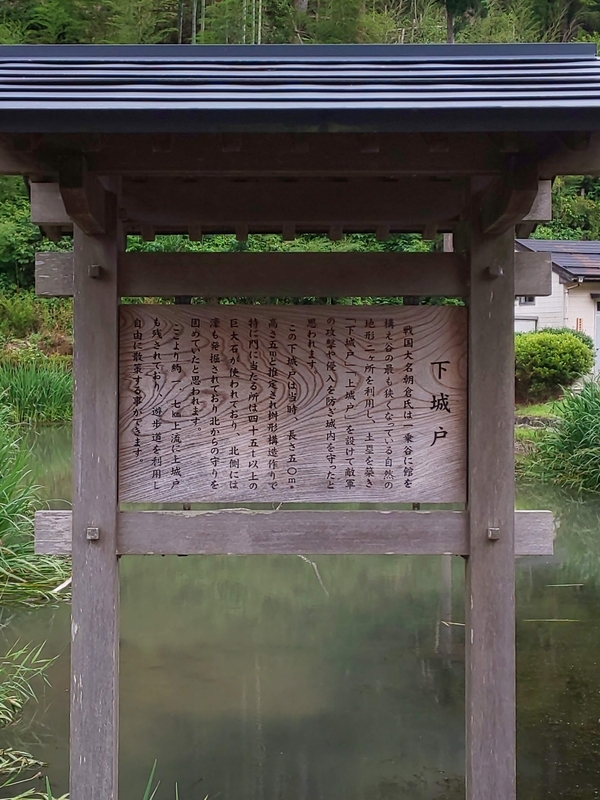 下城戸
戦国大名朝倉氏は一乗谷に館を
構え谷の最も狭くなっている自然の
地形二ヶ所を利用し、土塁を築き
「下城戸」「上城戸」を設けて敵軍
の攻撃や侵入を防ぎ城内を守ったと
思われます。
この下城戸は当時、長さ五〇m。
高さ五mと推定され枡形構造作りで
特に門に当たる所は四十五t以上の
巨大石が使われており、北側には
濠も発掘されており北からの守りを
固めていたと思われます。
ここより約一、七㎞上流に上城戸
も残されており、遊歩道を利用し
自由に散策する事ができます。